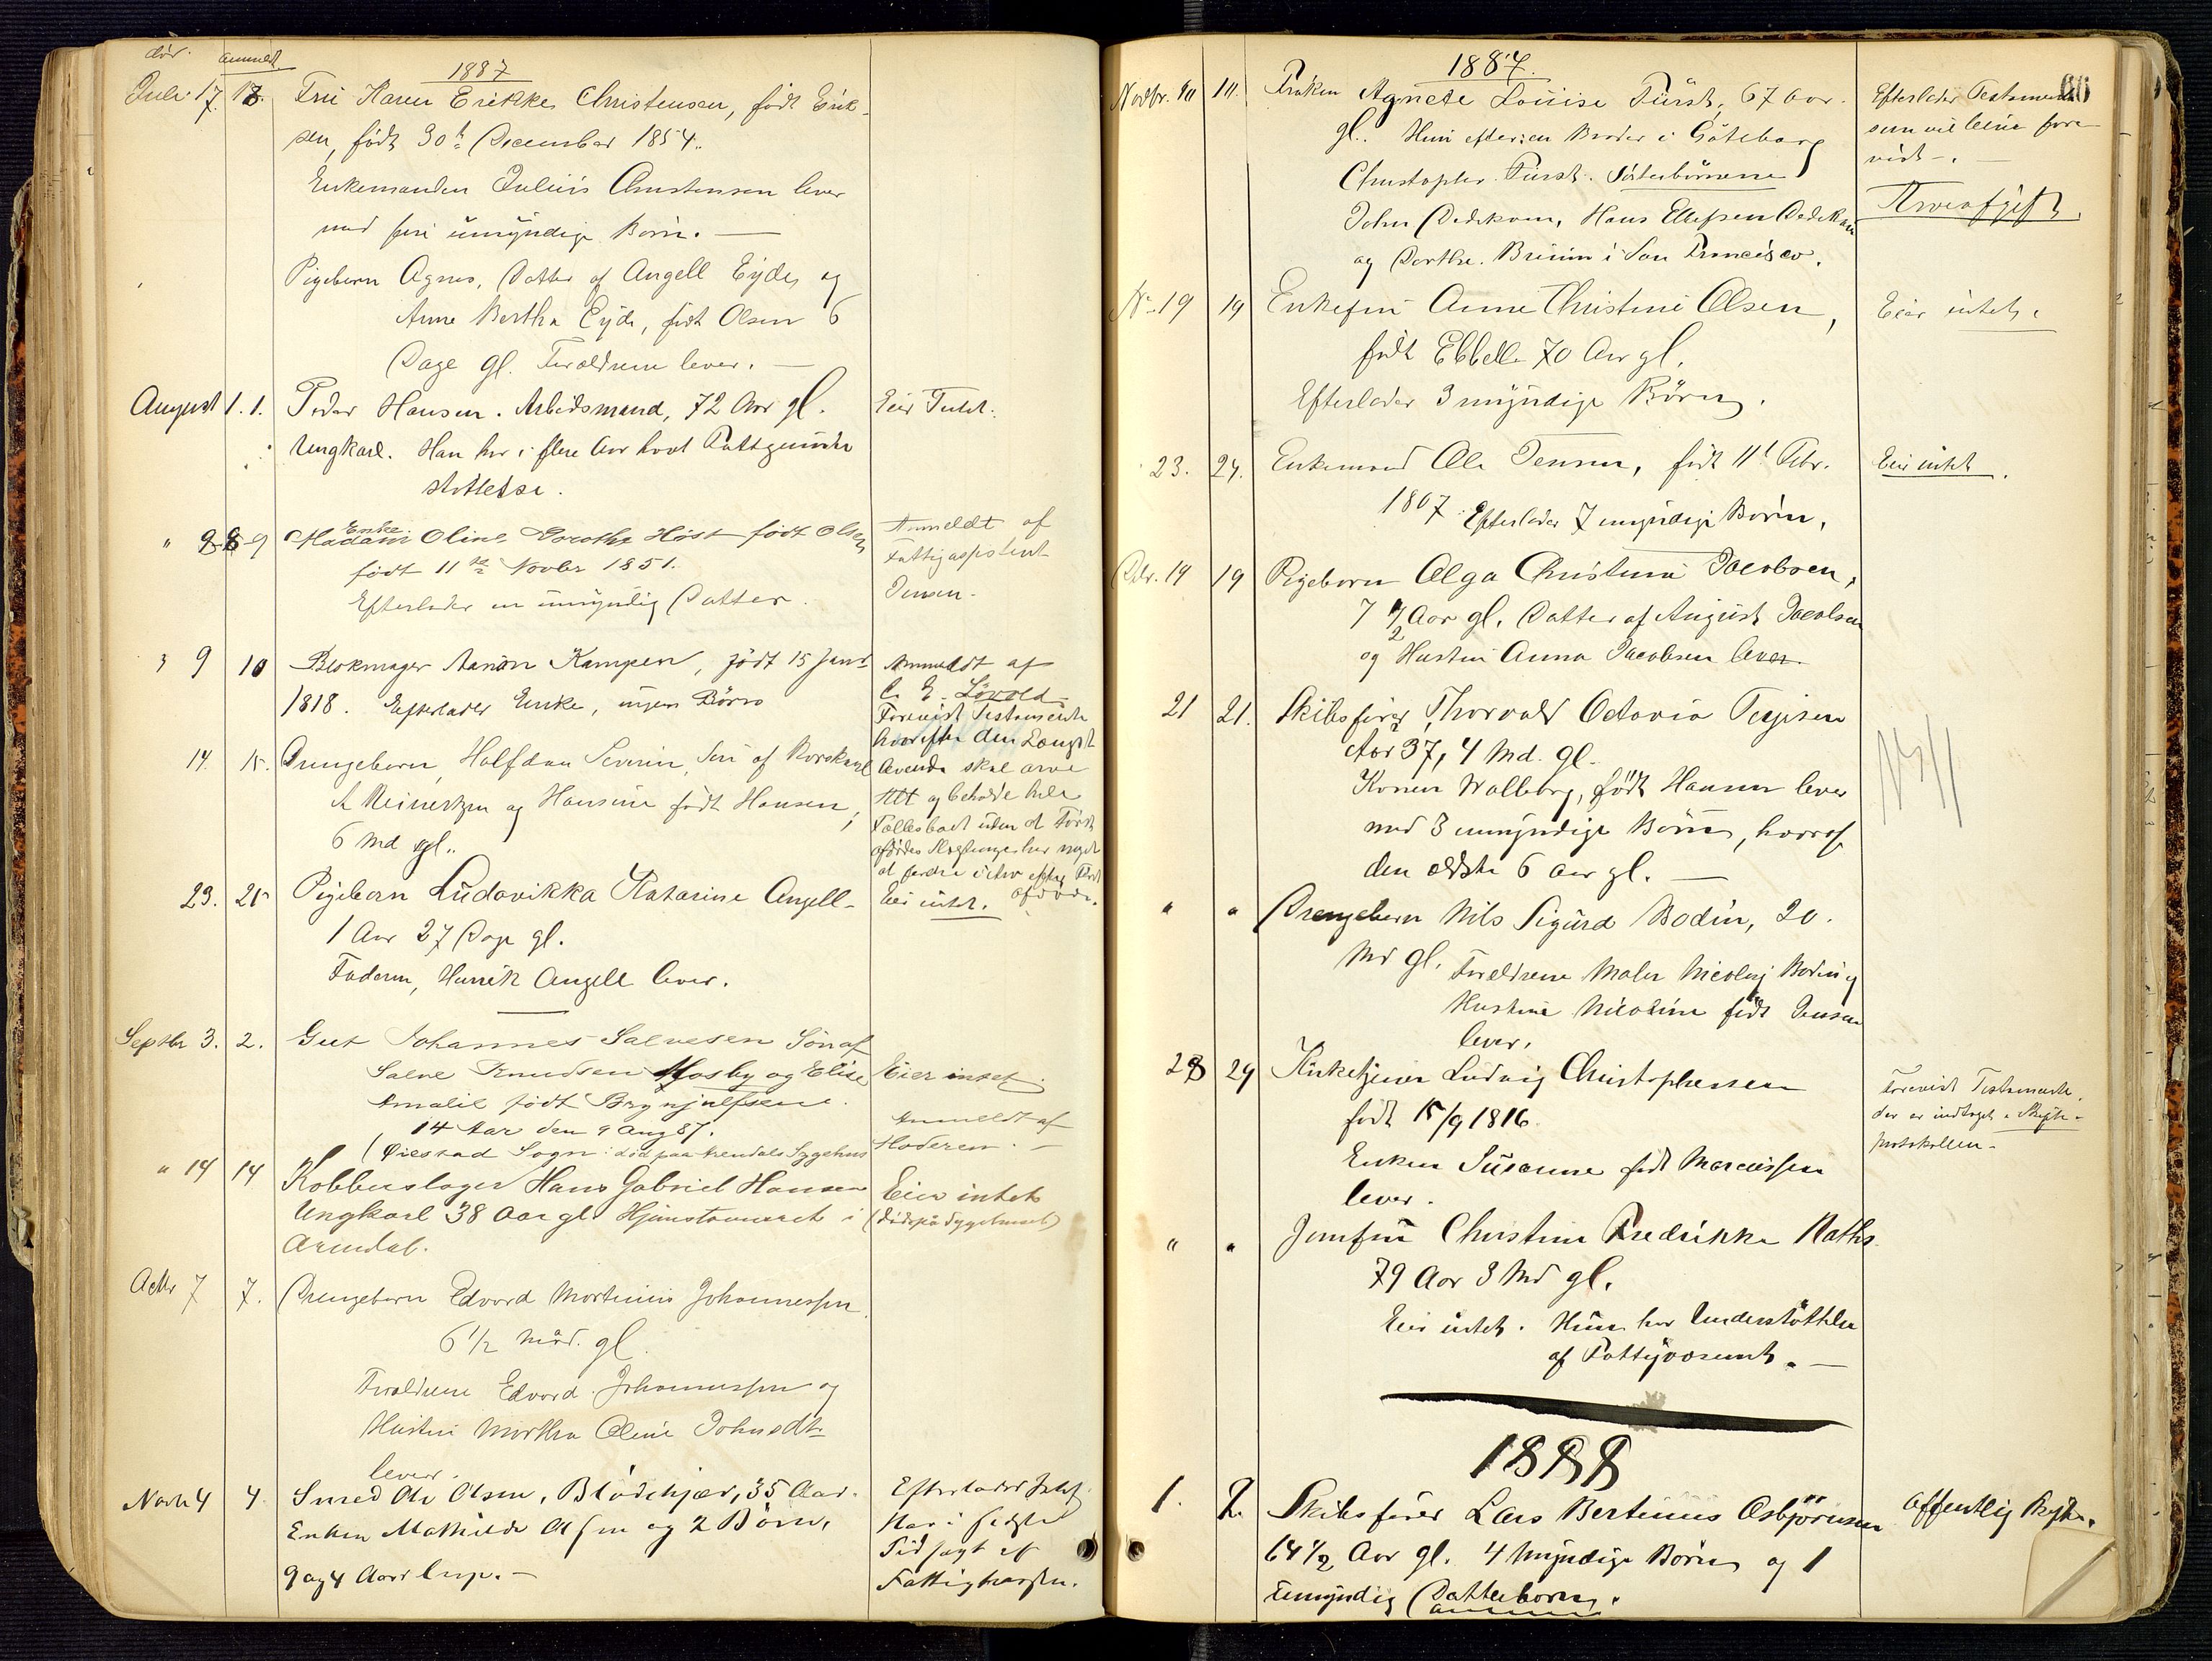 død. anmeldt.
1887
Juli 17. 18. Fru Karen Erikke Christensen, født Erik-
sen, født 30te December 1854.
Enkemanden Julius Christensen lever
med fire umyndige Børn. —
Pigebarn Agnes, Datter af Angell Eyde og
Anne Bertha Eyde, født Olsen 6
Dage gl. Forældrene lever. —
August 1. 1. Peder Hansen. Arbeidsmand, 72 Aar gl. Eier Intet.
Ungkarl. Han har i flere Aar havt Fattigunder
støttelse.
" 8 9 Enke
Madam Oline Dorothe Höst født Olsen Anmeldt af
Fattigassistent
født 11te Novbr 1851.
Efterlader en umyndig Datter. Jensen.
" 9 10 Blokmager Aanon Kampen, født 15 Janr Anmeldt af
C. E. Lövold
1818. Efterlader Enke, ingen Börn Forevist Testamente
hvorefter den Længst
14. 15. Drengebarn Halfdan Severin, Sön af levende skal arve
A Reinertzen og Hansine født Hansen, Alt og beholde hele
6 Md gl. Fællesboet uden at Först
afdødes
23. 25 Pigebarn Ludovikka Katarine Angell- Eier intet. afdøde.
1 Aar 27 Dage gl.
Faderen, Henrik Angell lever.
Septbr 3. 2. Gut Johannes Salvesen Sön af
Salve Knudsen Mosby og Elise Eier intet.
Amalie født Brynjulfsen.
14 Aar den 9 Aug 87. Anmeldt af
(Øiestad Sogn: död paa Arendals Sygehus Moderen. —
" 14 14 Kobberslager Hans Gabriel Hansen Eier intet
Ungkarl 38 Aar gl. Hjemstavnsret i (död på Sygehuset)
Arendal.
Octbr 7 7. Drengebarn Edvard Martinius Johannessen
6 1/2 Mdr. gl.
Forældrene Edvard Johannessen og
Hustru Martha Oline Johnsdt.
lever.
Novbr 4 4. Smed Ole Olsen, Blödekjær, 35 Aar. Efterlader Intet.
Enken Mathilde Olsen og 2 Börn, Har i sidste
Tid
9 og 4 Aar Fattigkassen.
66
1887.
Novbr. 10 11. Frøken Agnete Louise Fürst, 67 Aar Efterlader Testamente
gl. Hun efter: en Broder i Göteborg som vil blive fore
vist. —
Christopher Fürst. Søsterbørnene
John Dedekam, Hans Ellefsen Dedekam Arveafgift.
og Dorthe Bruun i San Francisco.
N. 19 19 Enkefru Anne Christine Olsen, Eier intet.
født Ebbell 70 Aar gl.
Efterlader 3 myndige Børn.
23. 24. Enkemand Ole Jensen, født 11te Febr. Eier intet.
1807. Efterlader 7 myndige Børn.
Dcbr. 19 19 Pigebarn Olga Christine Jacobsen,
7 1/2 Aar gl. Datter af August Jacobsen
og Hustru Anna Jacobsen lever.
21 21. Skibsfører Thorvald Octavia Terjesen
Aar 37, 4 Md. gl.
Konen Walborg, født Hansen lever
med 3 umyndige Børn, hvoraf
den ældste 6 Aar gl. —
" " Drengebarn Nils Sigurd Bodin, 20.
Md gl. Forældrene Maler Nicolay Bodin og
Hustru Nicoline født Jensen
lever.
28 29 Kirketjener Ludvig Christophersen Forevist Testamente,
født 15/9 1816. der er indtaget i Skifte-
protokollen. —
Enken Susanne født Marcussen
lever.
" " Jomfru Christine Fredrikke Raths
79 Aar 3 Md gl.
Eier intet. Hun har Understöttelse
af Fattigvæsenet. —
1888
1. 2. Skibsfører Lars Bertinius Osbjörnsen Offentlig Skifte.
64 1/2 Aar gl. 4 Myndige Børn og 1
Umyndig Datterbarn.